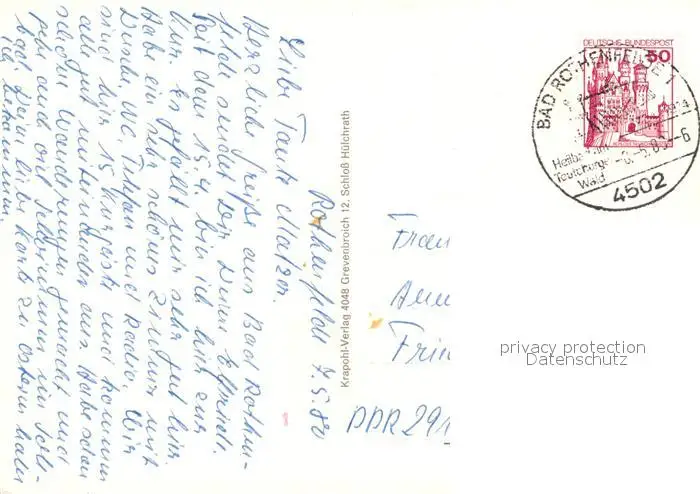 Rothenfelde 7.5.80
Liebe Tante Malzen.
Herzliche Grüße aus Bad Rothen-
felde sendet Dir Deine Elfriede.
Seit dem 15.4. bin ich hier zur
Kur. Es gefällt mir sehr gut hier
Habe ein sehr schönes Zimmer mit
Dusche, WC, Telefon und Radio. Wir
sind hier 15 Kurgäste und kommen
alle gut miteinander aus. Habe schon
schöne Wanderungen gemacht und
auch viel Schwimmen im Sole-
bad. Deine liebe Karte zu Ostern habe
ich bekommen.
Krapohl-Verlag 4048 Grevenbroich 12, Schloß Hülchrath
DEUTSCHE BUNDESPOST
50
BAD ROTHENFELDE
Heilbad
Teutoburger
Wald
4502
Frau
Frie
DDR 291
privacy protection
Datenschutz